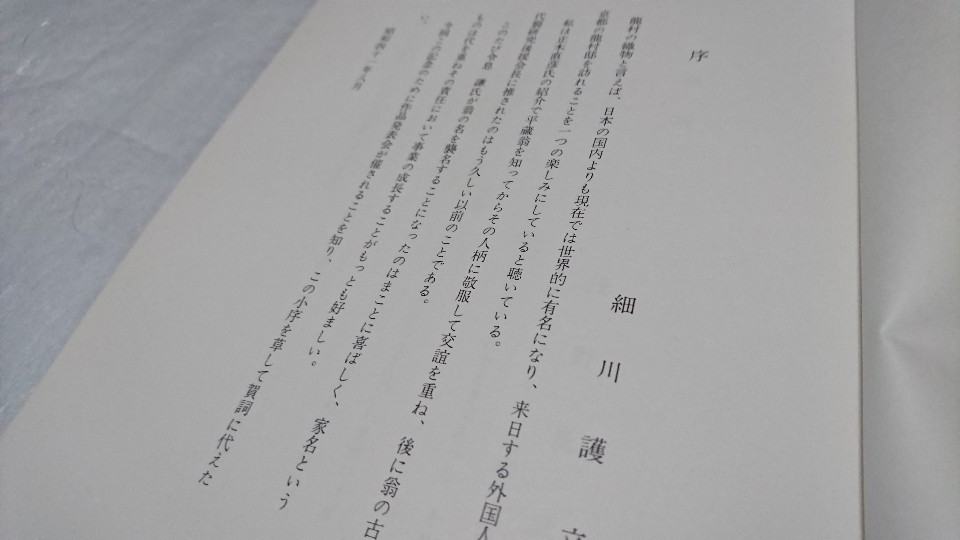 序
細川護立
龍村の織物と言えば、日本の国内よりも現在では世界的に有名になり、来日する外国人
京都の龍村邸を訪れることを一つの楽しみにしていると聴いている。
私は正木直彦氏の紹介で平蔵翁を知ってからその人柄に敬服して交誼を重ね、後に翁の古
代裂研究後援会長に推されたのはもう久しい以前のことである。
このたび令息 謙氏が翁の名を襲名することになったのはまことに喜ばしく、家名という
ものは代を重ねその責任において事業の成長することがもっとも好ましい。
今回この記念のために作品発表会が催されることを知り、この小序を草して賀詞に代えた
い。
昭和四十一年八月